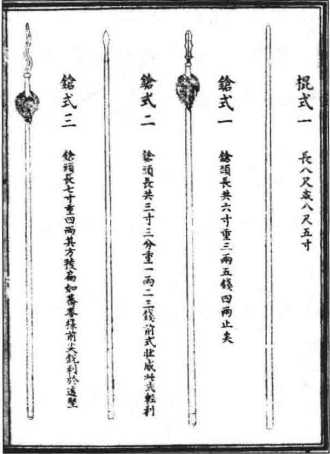 棍式一 長八尺或八尺五寸
鎗式一 鎗頭長共六寸重三兩五錢四兩止矣
鎗式二 鎗頭長共三寸三分重一兩二三錢前式壯威此式輕利
鎗式三 鎗頭長七寸重四兩其方稜扁如蕎麥樣前尖銳利於透堅